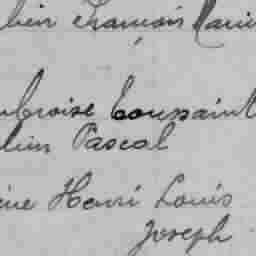 bien François Marie
mbroise Toussaint
lien Pascal
ène Henri Louis
Joseph